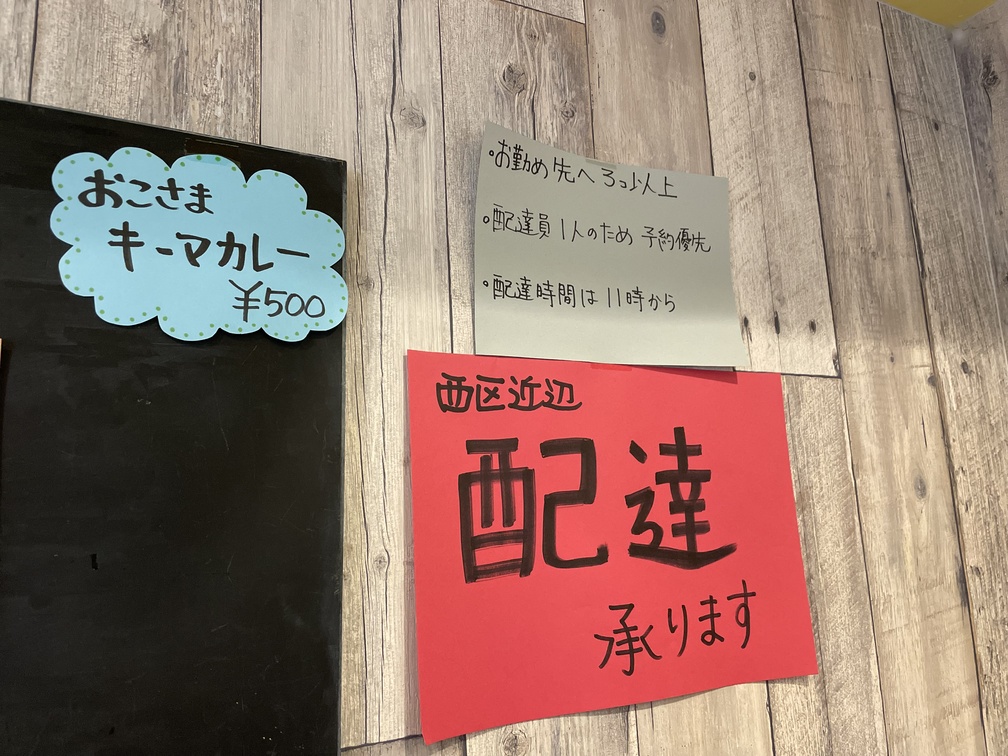 おこさま
キーマカレー
¥500
・お勤め先へ3つ以上
・配達員1人のため 予約優先
・配達時間は11時から
西区近辺
配達
承ります